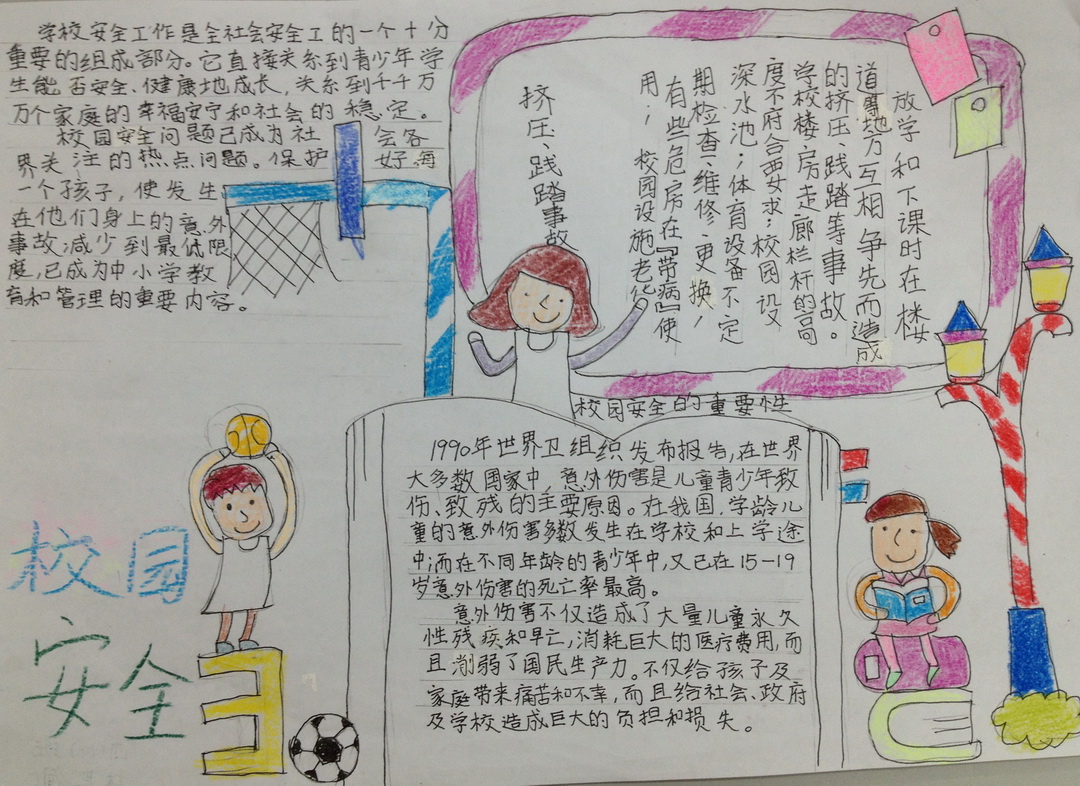 学校安全工作是全社会安全工的一个十分
重要的组成部分。它直接关系到青少年学
生能否安全、健康地成长,关系到千千万
万个家庭的幸福安宁和社会的稳定。
校园安全问题已成为社会各
界关注的热点问题。保护好每
一个孩子,使发生
在他们身上的意外
事故减少到最低限
度,已成为中小学教
育和管理的重要内容。
挤压、践踏事故
放学和下课时在楼
道等地方互相争先而造成
的挤压、践踏等事故。
学校楼房走廊栏杆的高
度不府合要求;校园设
深水池;体育设备不定
期检查、维修、更换;
有些危房在『带病』使
用;校园设施老化
校园安全的重要性
1990年世界卫组织发布报告,在世界
大多数国家中,意外伤害是儿童青少年致
伤、致残的主要原因。在我国,学龄儿
童的意外伤害多数发生在学校和上学途
中;而在不同年龄的青少年中,又已在15-19
岁意外伤害的死亡率最高。
意外伤害不仅造成了大量儿童永久
性残疾和早亡,消耗巨大的医疗费用,而
且削弱了国民生产力。不仅给孩子及
家庭带来痛苦和不幸,而且给社会、政府
及学校造成巨大的负担和损失。
校园
安全